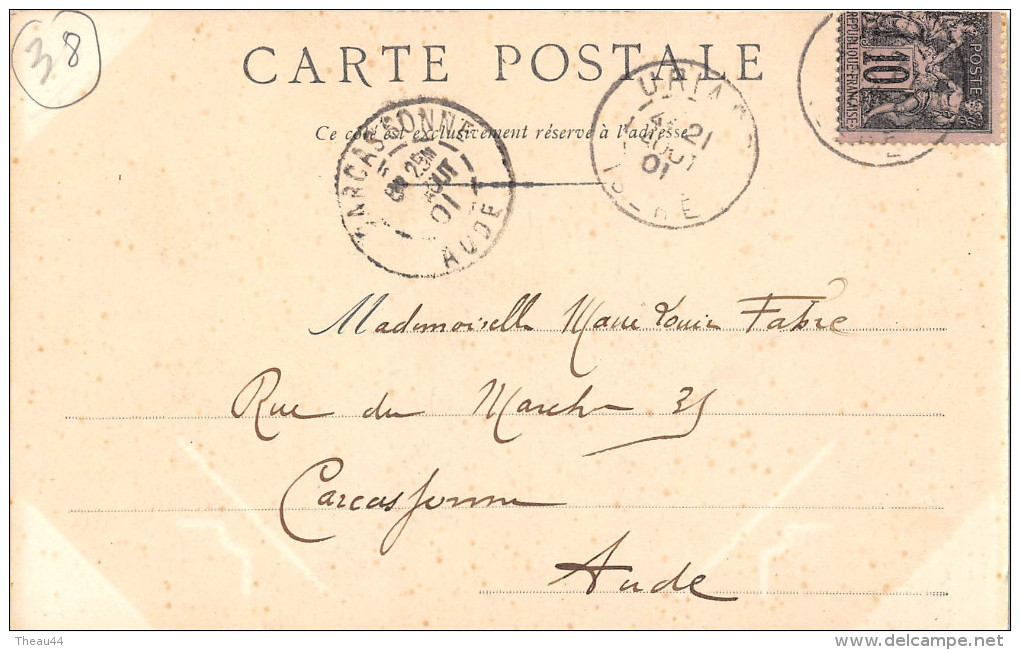 38
CARTE POSTALE
Ce côté est exclusivement réservé à l'adresse
CARCASSONNE
25
AOUT
01
AUDE
URIAGE
21
AOUT
01
ISERE
POSTES
10
REPUBLIQUE FRANÇAISE
Mademoiselle Marie Louise Fabre
Rue du Marché 35
Carcassonne
Aude
Theau44
www.delcampe.net